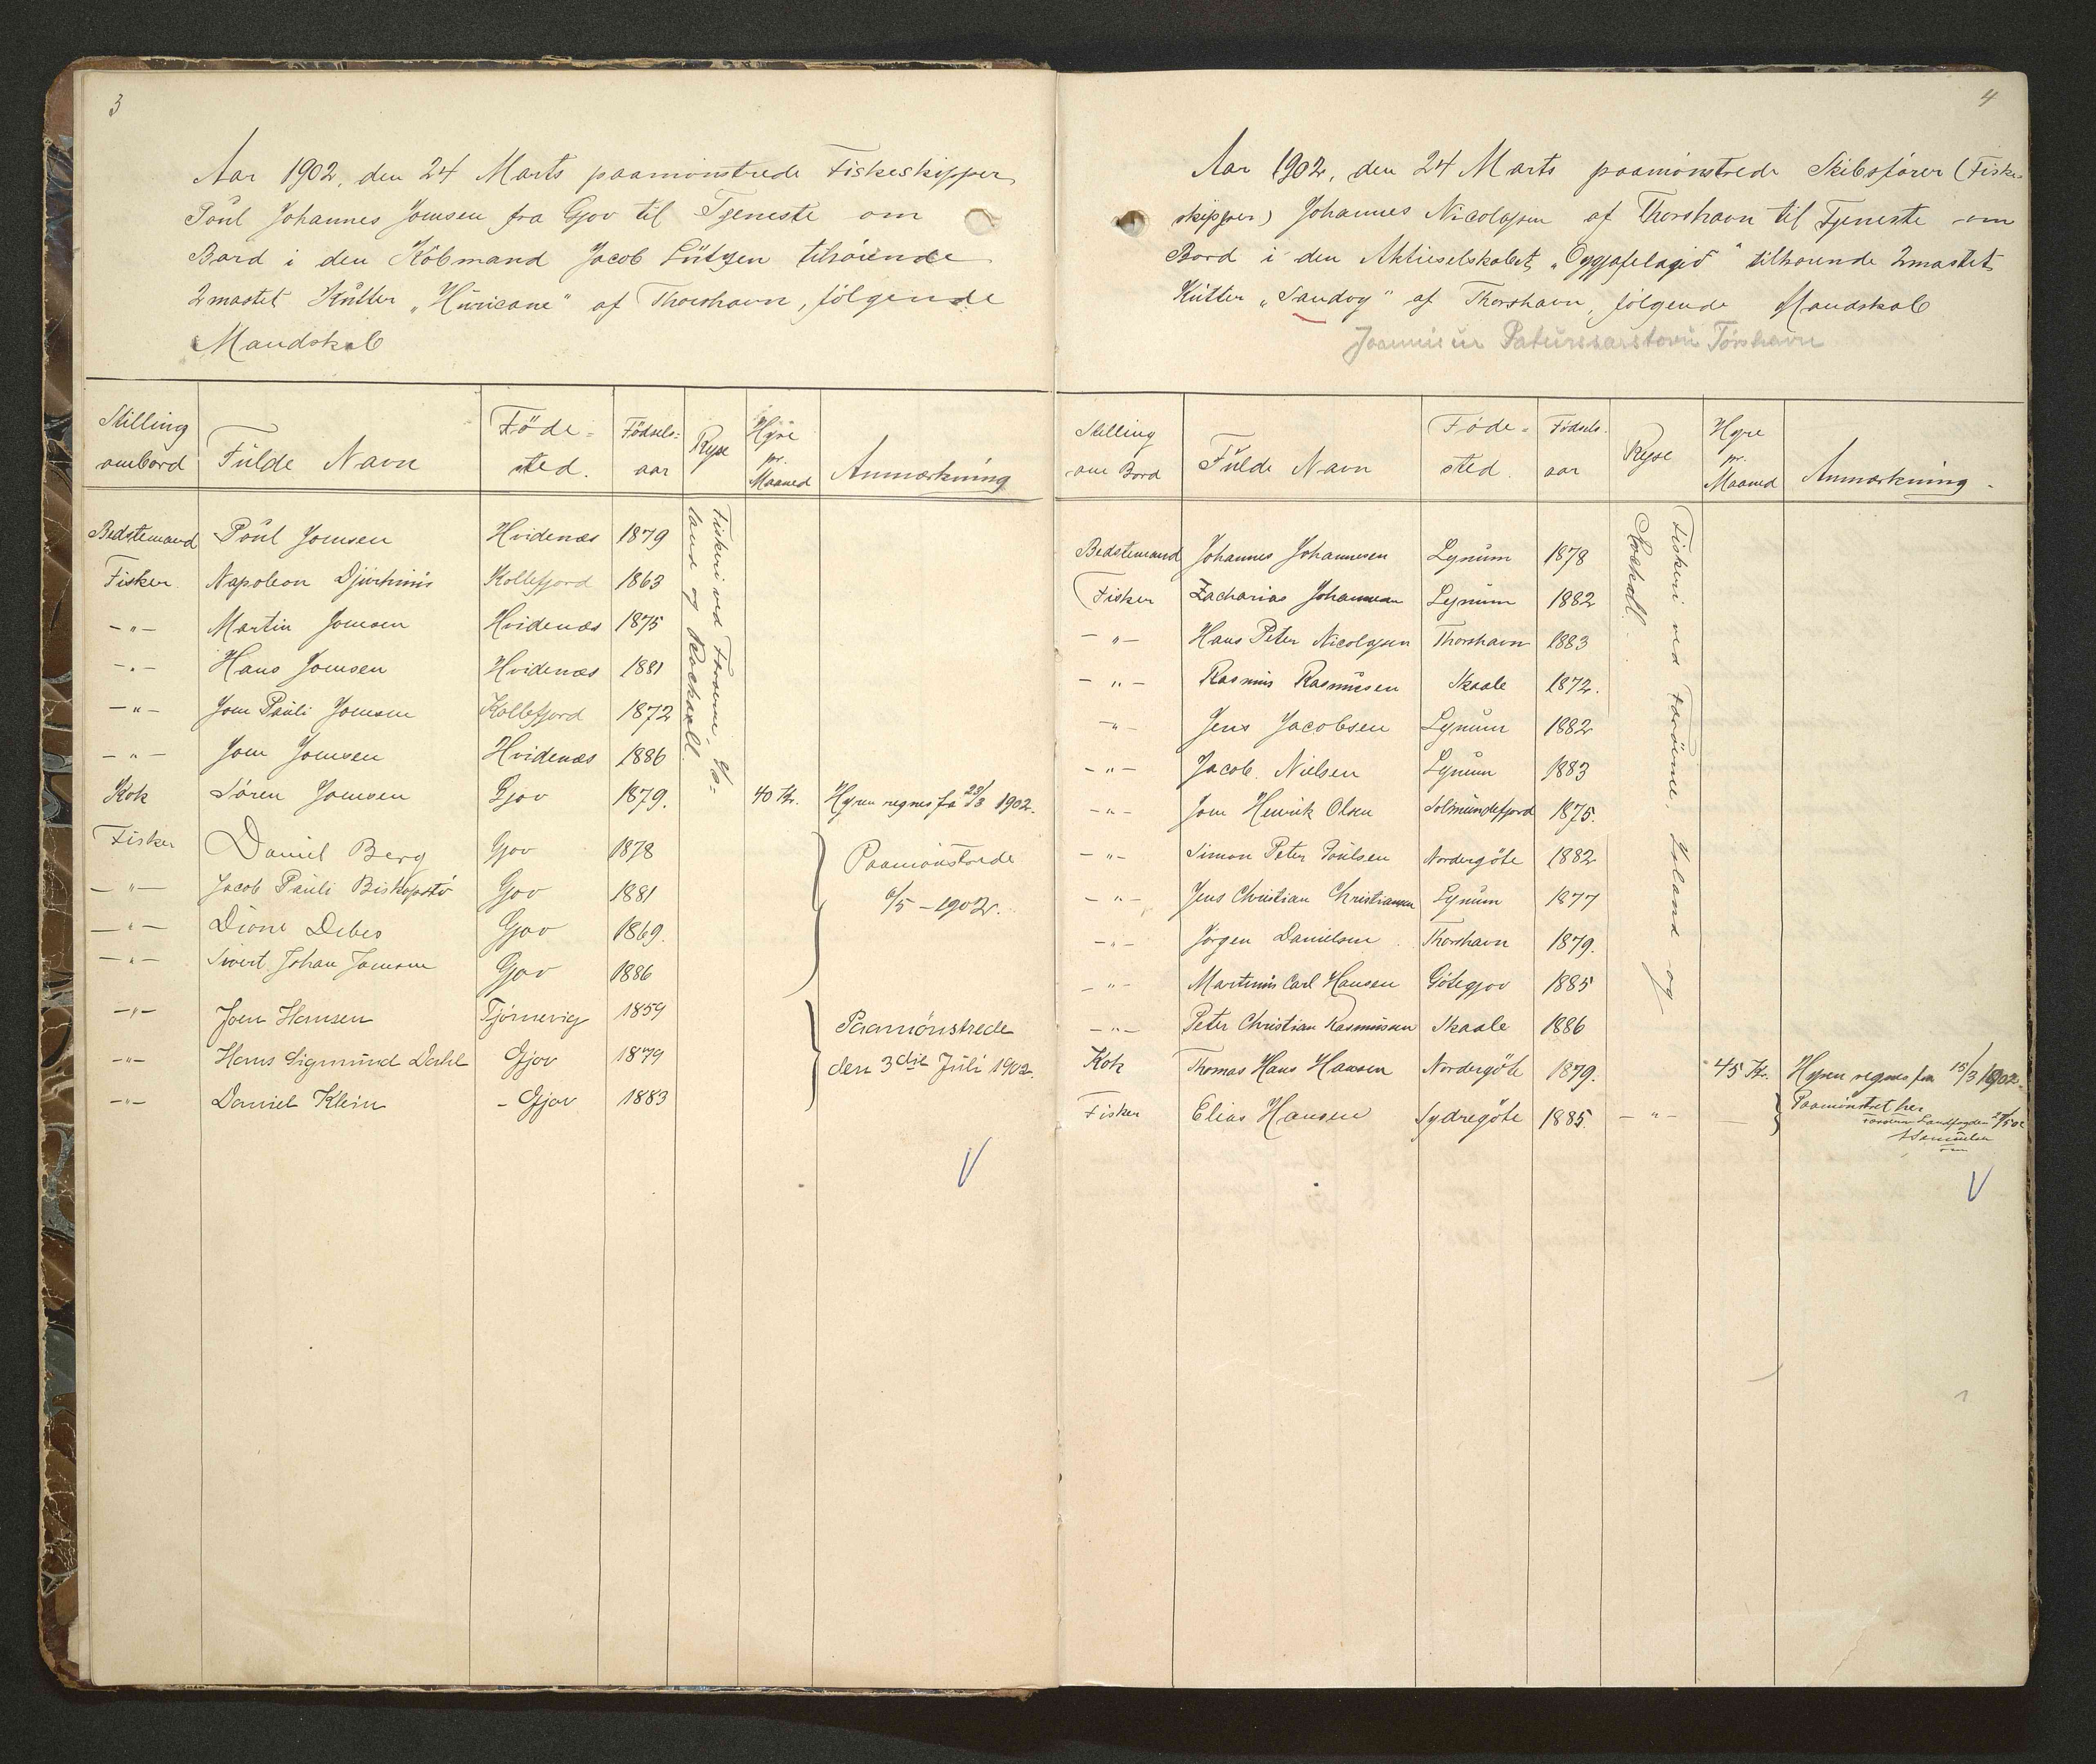 3
Aar 1902, den 24 Marts paamönstrede Fiskeskipper
Poul Johannes Joensen fra Gjov til Tjeneste om
Bord i den Köbmand Jacob Lützen tilhörende
2mastet Kutter „Huricane" af Thorshavn, fölgende
Mandskab
Stilling ombord | Fulde Navn | Föde=sted. | Födsels=aar | Rejse | Hyre pr. Maaned | Anmærkning
Bedstemand Poul Joensen Hvidenæs 1879
Fisker Napoleon Djurhuus Kollefjord 1863
-"- Martin Joensen Hvidenæs 1875
-"- Hans Joensen Hvidenæs 1881
-"- Joen Pauli Joensen Kollefjord 1872
-"- Joen Joensen Hvidenæs 1886
Kok Sören Joensen Gjov 1879. 40 Kr. Hyren regnes fra 23/3 1902.
Fisker Daniel Berg Gjov 1878 Paamönstrede
-"- Jacob Pauli Biskopstö Gjov 1881 6/5 - 1902.
-"- Dione Debes Gjov 1869.
-"- Sivert Johan Joensen Gjov 1886
-"- Joen Hansen Tjörnevig 1859 Paamönstrede
-"- Hans Sigmund Dahl Gjov 1879 den 3die Juli 1902.
-"- Daniel Klein - Gjov 1883
Fiskeri ved Færöerne, Is=
land og Rockhall.
4
Aar 1902, den 24 Marts paamönstrede Skibsförer (Fiske
skipper) Johannes Nicolajsen af Thorshavn til Tjeneste om
Bord i den Aktieselskabet „Oggjafelagid" tilhörende 2mastet
Kutter „Sandoy" af Thorshavn, fölgende Mandskab
Joannisur Paturssarstovu Tórshavn
Stilling om Bord | Fulde Navn | Föde=sted | Födsels.aar | Rejse | Hyre pr. Maaned | Anmærkning.
Bedstemand Johannes Johannesen Lynum 1878
Fisker Zacharias Johannesen Lynum 1882
-"- Hans Peter Nicolajsen Thorshavn 1883
-"- Rasmus Rasmussen Skaale 1872.
-"- Jens Jacobsen Lynum 1882
-"- Jacob Nielsen Lynum 1883
-"- Joen Henrik Olsen Solmundefjord 1875.
-"- Simon Peter Poulsen Nordergöte 1882
-"- Jens Christian Christiansen Lynum 1877
-"- Jörgen Danielsen Thorshavn 1879.
-"- Martinus Carl Hansen Götegjov 1885
-"- Peter Christian Rasmussen Skaale 1886
Kok Thomas Hans Hansen Nordergöte 1879. 45 Kr. Hyren regnes fra 15/3 1902.
Fisker Elias Hansen Sydregöte 1885. -"- Paamönstret her
Landfogden
Fiskeri ved Færöerne, Island og
Rockall.